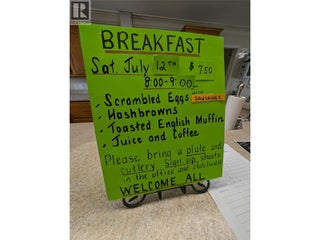 REALTOR
BREAKFAST
Sat. July 12TH $7.50
8:00-9:00
• Scrambled Eggs WITH SAUSAGES
• Hashbrowns
• Toasted English Muffin
• Juice and Coffee
Please bring a plate and
cutlery Sign up sheets
in the office and clubhouse
WELCOME ALL